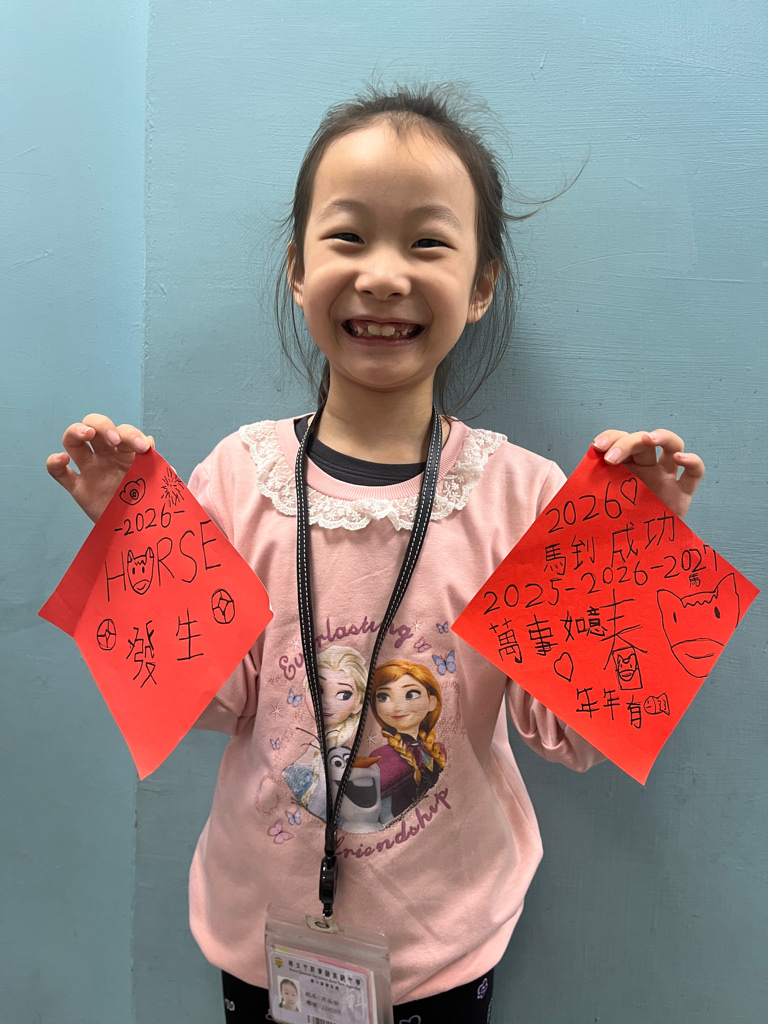 -2026-
HORSE
發生
2026
馬到成功
2025-2026-2027
馬
萬事如意
春
年年有
Everlasting
friendship